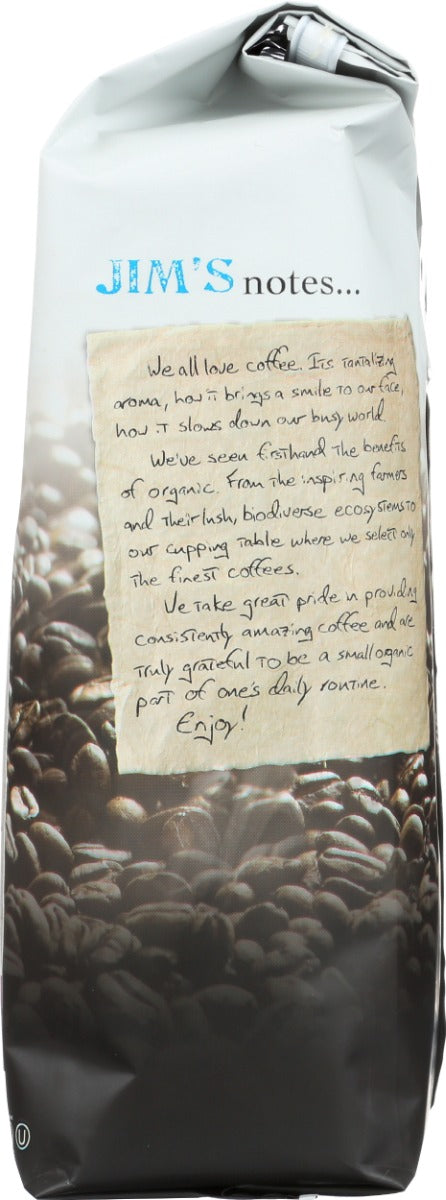 JIM'S notes...
We all love coffee. Its tantalizing
aroma, how it brings a smile to our face,
how it slows down our busy world
We've seen firsthand the benefits
of organic. From the inspiring farmers
and their lush, biodiverse ecosystems to
our cupping table where we select only
the finest coffees.
We take great pride in providing
consistently amazing coffee and are
truly grateful to be a small organic
part of one's daily routine.
Enjoy!
U